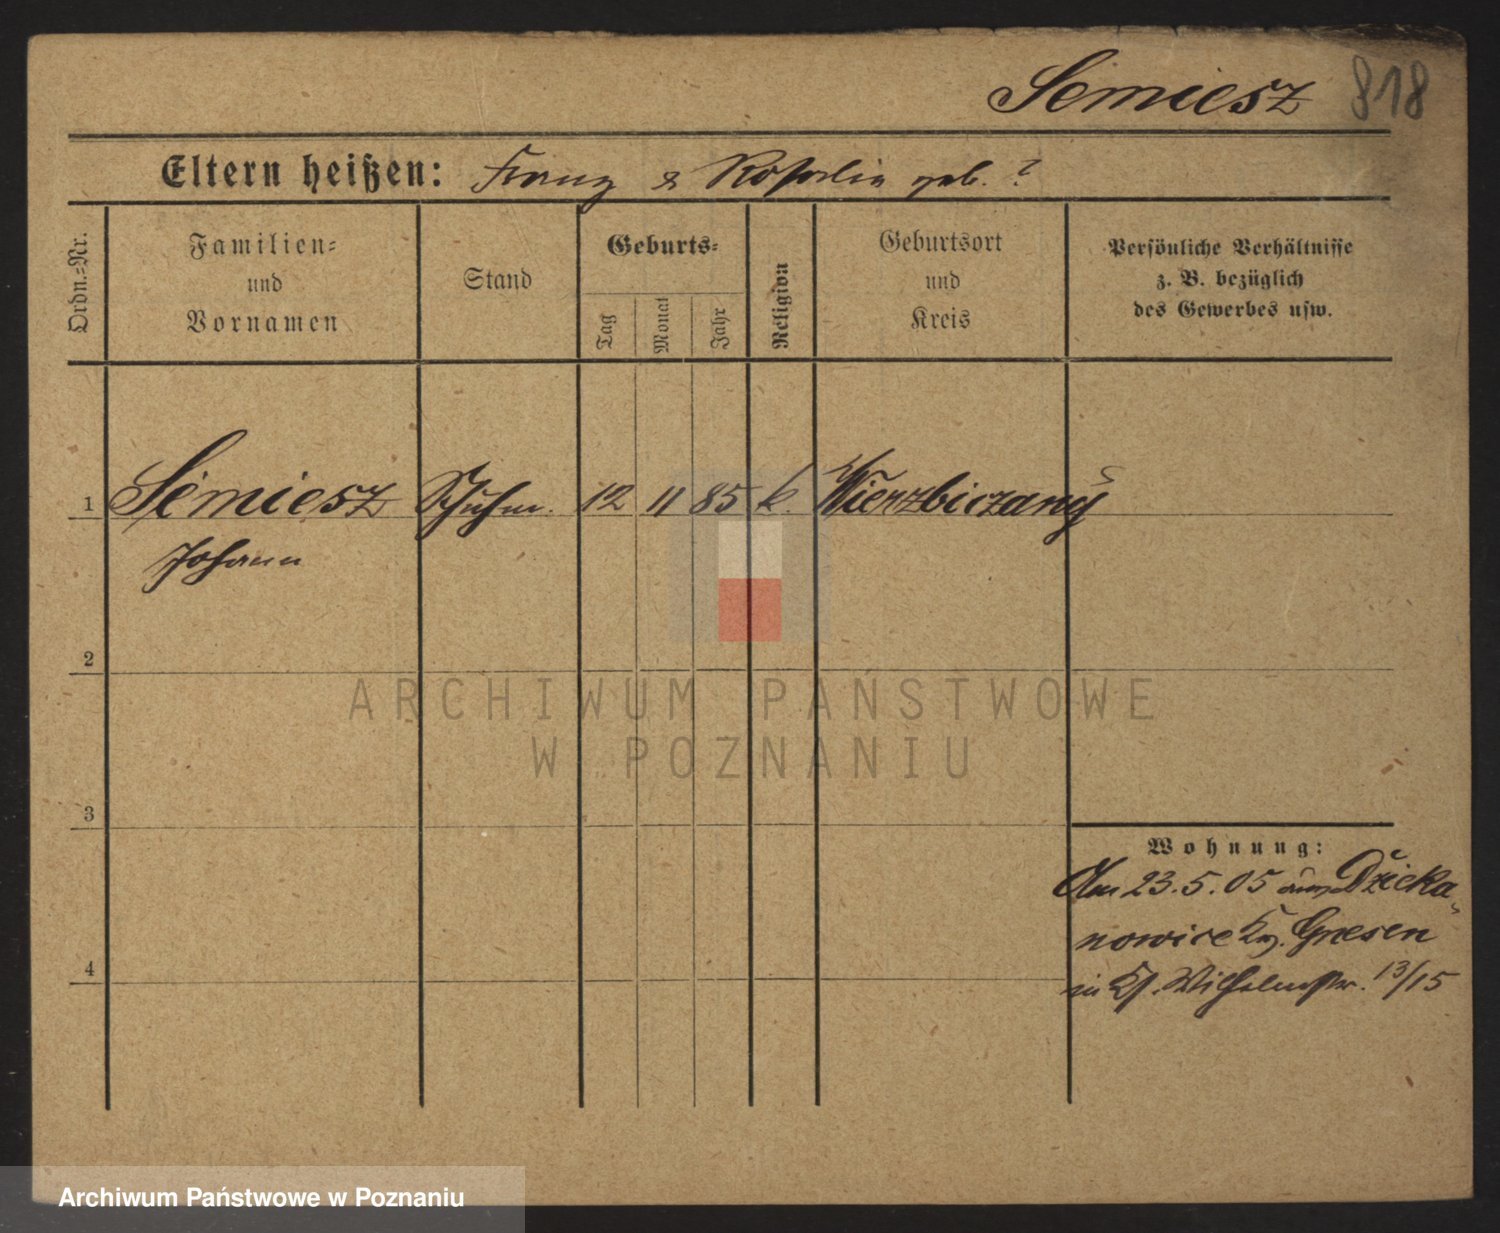 Semiesz 818
Eltern heißen: Franz & Rosalia geb. ?
Ordn.-Nr.
Familien-
und
Vornamen
Stand
Geburts-
Tag
Monat
Jahr
Religion
Geburtsort
und
Kreis
Persönliche Verhältnisse
z. B. bezüglich
des Gewerbes usw.
1 Semiesz Schuhm. 12 11 85 k. Wierzbiczany
Johann
2
3
4
Wohnung:
Am 23.5.05 aus Dzieka-
nowice Kr. Gnesen
in Wilhelmstr. 13/15
ARCHIWUM PAŃSTWOWE
W POZNANIU
Archiwum Państwowe w Poznaniu